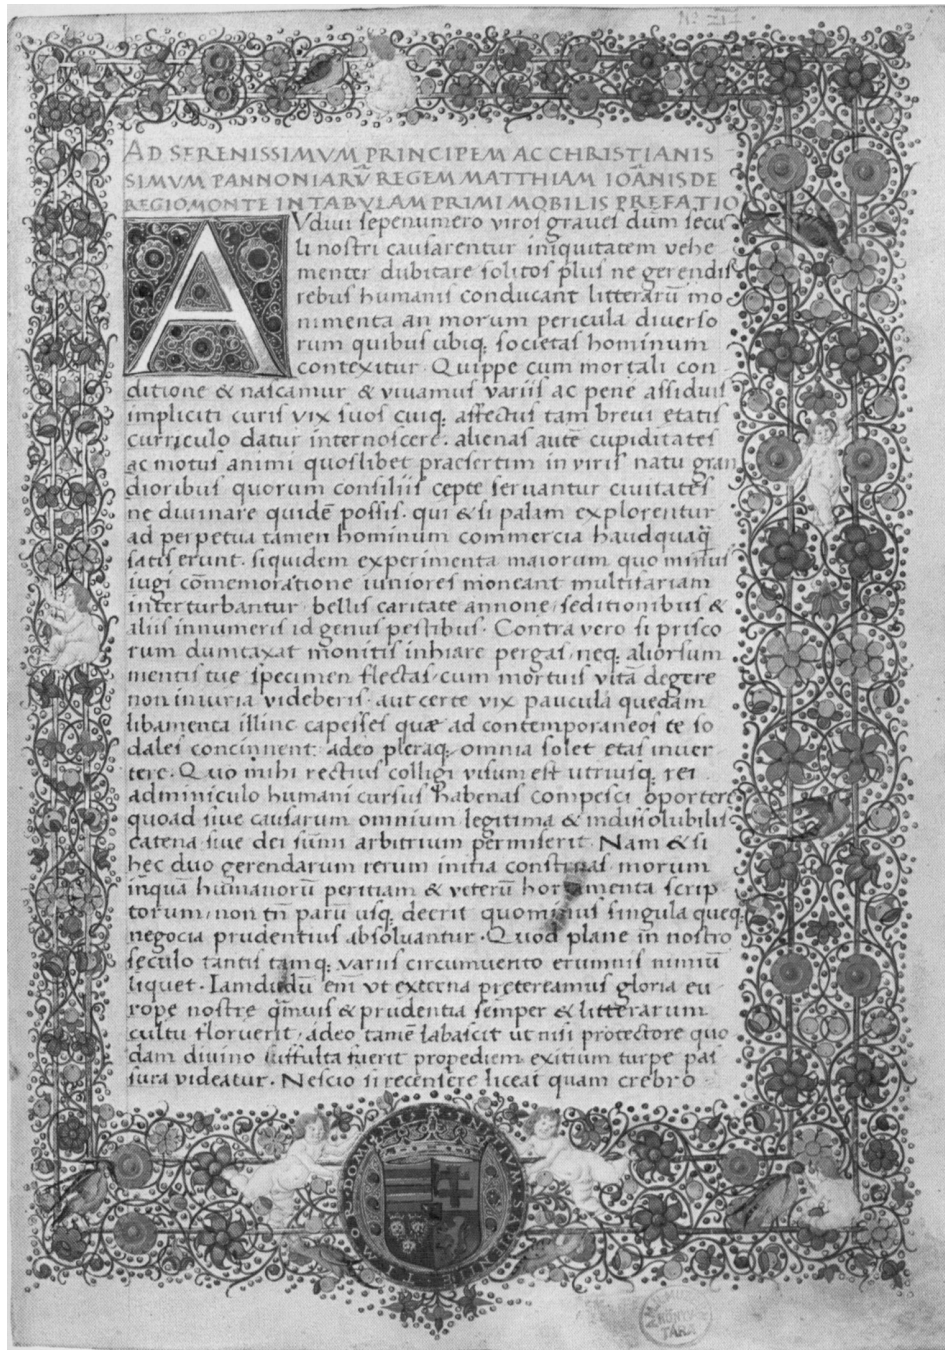 AD SERENISSIMVM PRINCIPEM AC CHRISTIANIS
SIMVM PANNONIARŪ REGEM MATTHIAM IOĀNIS DE
REGIOMONTE IN TABVLAM PRIMI MOBILIS PREFATIO
AVdiui sepenumero viros graues dum secu
li nostri causarentur iniquitatem vehe
menter dubitare solitos plus ne gerendis
rebus humanis conducant litterarū mo
nimenta an morum pericula diuerso
rum quibus ubiq; societas hominum
contexitur. Quippe cum mortali con
ditione & nascamur & viuamus variis ac pene assiduis
impliciti curis vix suos cuiq; affectus tam breui etatis
curriculo datur internoscere. alienas autē cupiditates
ac motus animi quoslibet praesertim in viris natu gran
dioribus quorum consiliis cepte seruantur ciuitates
ne diuinare quidē possis. qui & si palam explorentur
ad perpetua tamen hominum commercia haudquaq̄
satis erunt. siquidem experimenta maiorum quo minus
iugi cōmemoratione iuniores moneant multifariam
interturbantur. bellis caritate annone, seditionibus &
aliis innumeris id genus pestibus. Contra vero si prisco
rum dumtaxat monitis inhiare pergas, neq; aliorsum
mentis tue specimen flectas, cum mortuis vitā degere
non iniuria videberis. aut certe vix paucula quedam
libamenta illinc capesses quæ ad contemporaneos te so
dales concinnent. adeo pleraq; omnia solet etas inuer
tere. Quo mihi rectius colligi visum est utriusq; rei
adminiculo humani cursus habenas compesci oportere
quoad siue causarum omnium legitima & indissolubilis
catena siue dei sūmi arbitrium permiserit. Nam & si
hec duo gerendarum rerum initia constituas. morum
inqua humanorū peritiam & veterū hortamenta scrip
torum, non tn̄ parū usq; decrit quominus singula queq;
negocia prudentius absoluantur. Quod plane in nostro
seculo tantis tamq; variis circumuento erumnis nimiū
liquet. Iamdudū eni vt externa pretereamus gloria eu
rope nostre q̄muis & prudentia semper & litterarum
cultu floruerit. adeo tamē labascit ut nisi protectore quo
dam diuino suffulta fuerit propediem exitium turpe pas
sura videatur. Nescio si recensere liceat quam crebro
KÖNYV
TÁRA